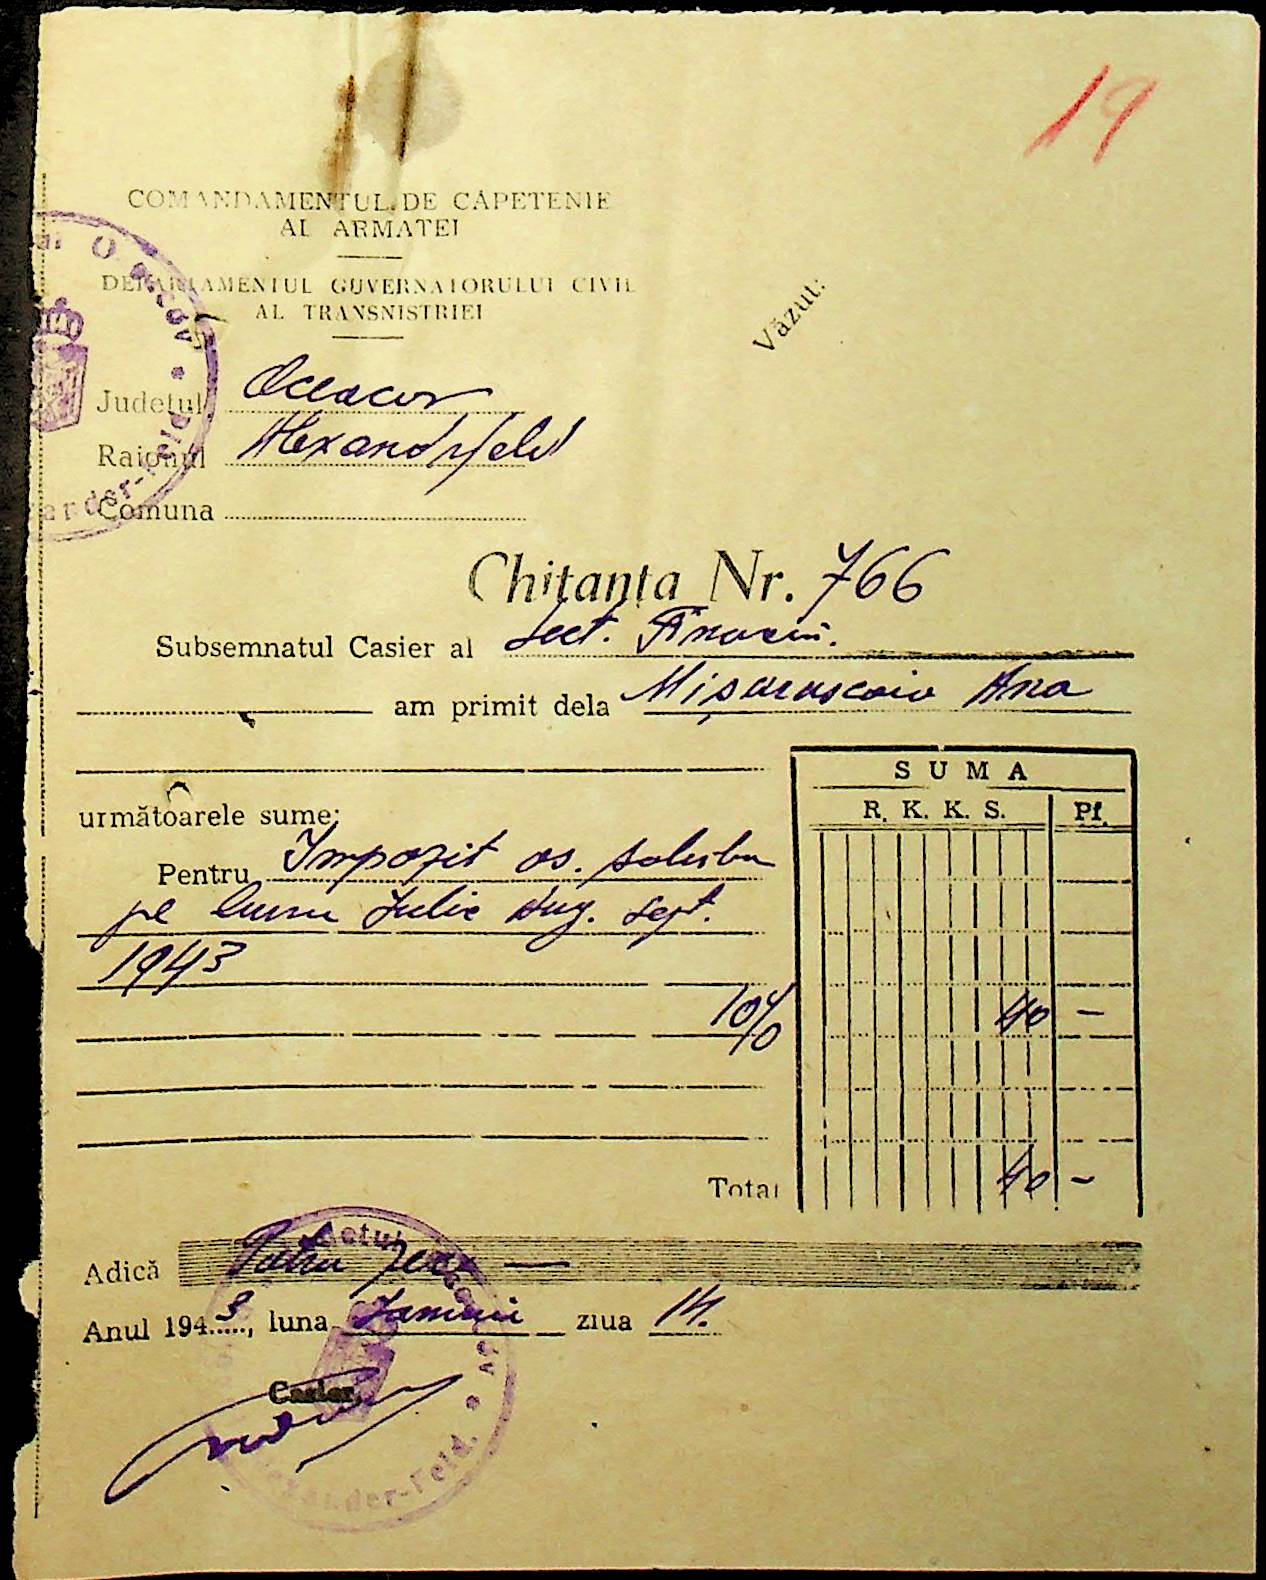 19
COMANDAMENTUL DE CĂPETENIE
AL ARMATEI
DEPARTAMENTUL GUVERNATORULUI CIVIL
AL TRANSNISTRIEI
Văzut:
Județul Oceacov
Raionul Alexandrfeld
Comuna
Chitanța Nr. 766
Subsemnatul Casier al Sect. Financiar.
am primit dela Ana
SUMA
R. K. K. S. Pf.
următoarele sume:
Pentru Impozit as.
pe luna Iulie Aug. Sept.
1943
10% 40 –
Total 40 –
Adică Patru zeci —
Anul 1943, luna ziua 14.
Casier,
Alexander-Feld.